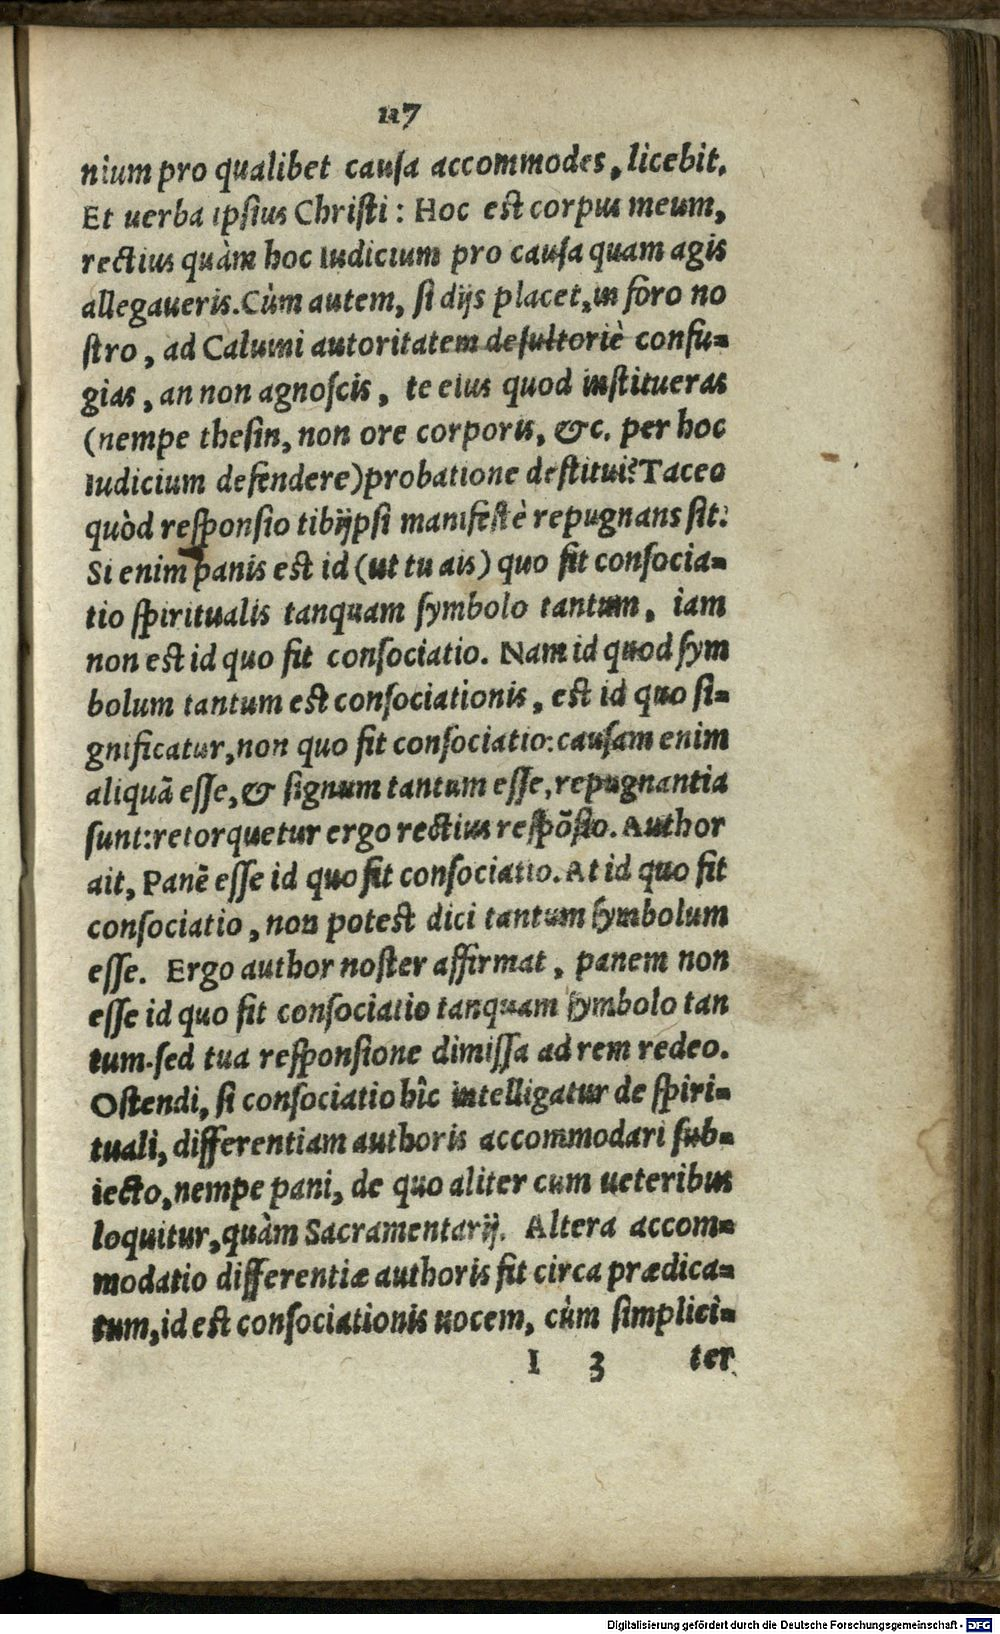 117
nium pro qualibet cauſa accommodes, licebit.
Et uerba ipſius Chriſti: Hoc eſt corpus meum,
rectius quàm hoc Iudicium pro cauſa quam agis
allegaueris. Cùm autem, ſi dijs placet, in foro no
ſtro, ad Caluini autoritatem deſultoriè confu=
gias, an non agnoſcis, te eius quod inſtitueras
(nempe theſin, non ore corporis, &c. per hoc
Iudicium defendere) probatione deſtitui? Taceo
quòd reſponſio tibijpſi manifeſtè repugnans ſit:
Si enim panis eſt id (ut tu ais) quo fit conſocia=
tio ſpiritualis tanquam ſymbolo tantum, iam
non eſt id quo fit conſociatio. Nam id quod ſym
bolum tantum eſt conſociationis, eſt id quo ſi=
gnificatur, non quo fit conſociatio: cauſam enim
aliquã eſſe, & ſignum tantum eſſe, repugnantia
ſunt: retorquetur ergo rectius reſpõſio. Author
ait, Panẽ eſſe id quo fit conſociatio. At id quo fit
conſociatio, non poteſt dici tantum ſymbolum
eſſe. Ergo author noſter affirmat, panem non
eſſe id quo fit conſociatio tanquam ſymbolo tan
tum. ſed tua reſponſione dimiſſa ad rem redeo.
Oſtendi, ſi conſociatio hîc intelligatur de ſpiri=
tuali, differentiam authoris accommodari ſub=
iecto, nempe pani, de quo aliter cum ueteribus
loquitur, quàm Sacramentarij. Altera accom=
modatio differentiæ authoris fit circa prædica=
tum, id eſt conſociationis uocem, cùm ſimplici=
I 3 ter
Digitalisierung gefördert durch die Deutsche Forschungsgemeinschaft - DFG